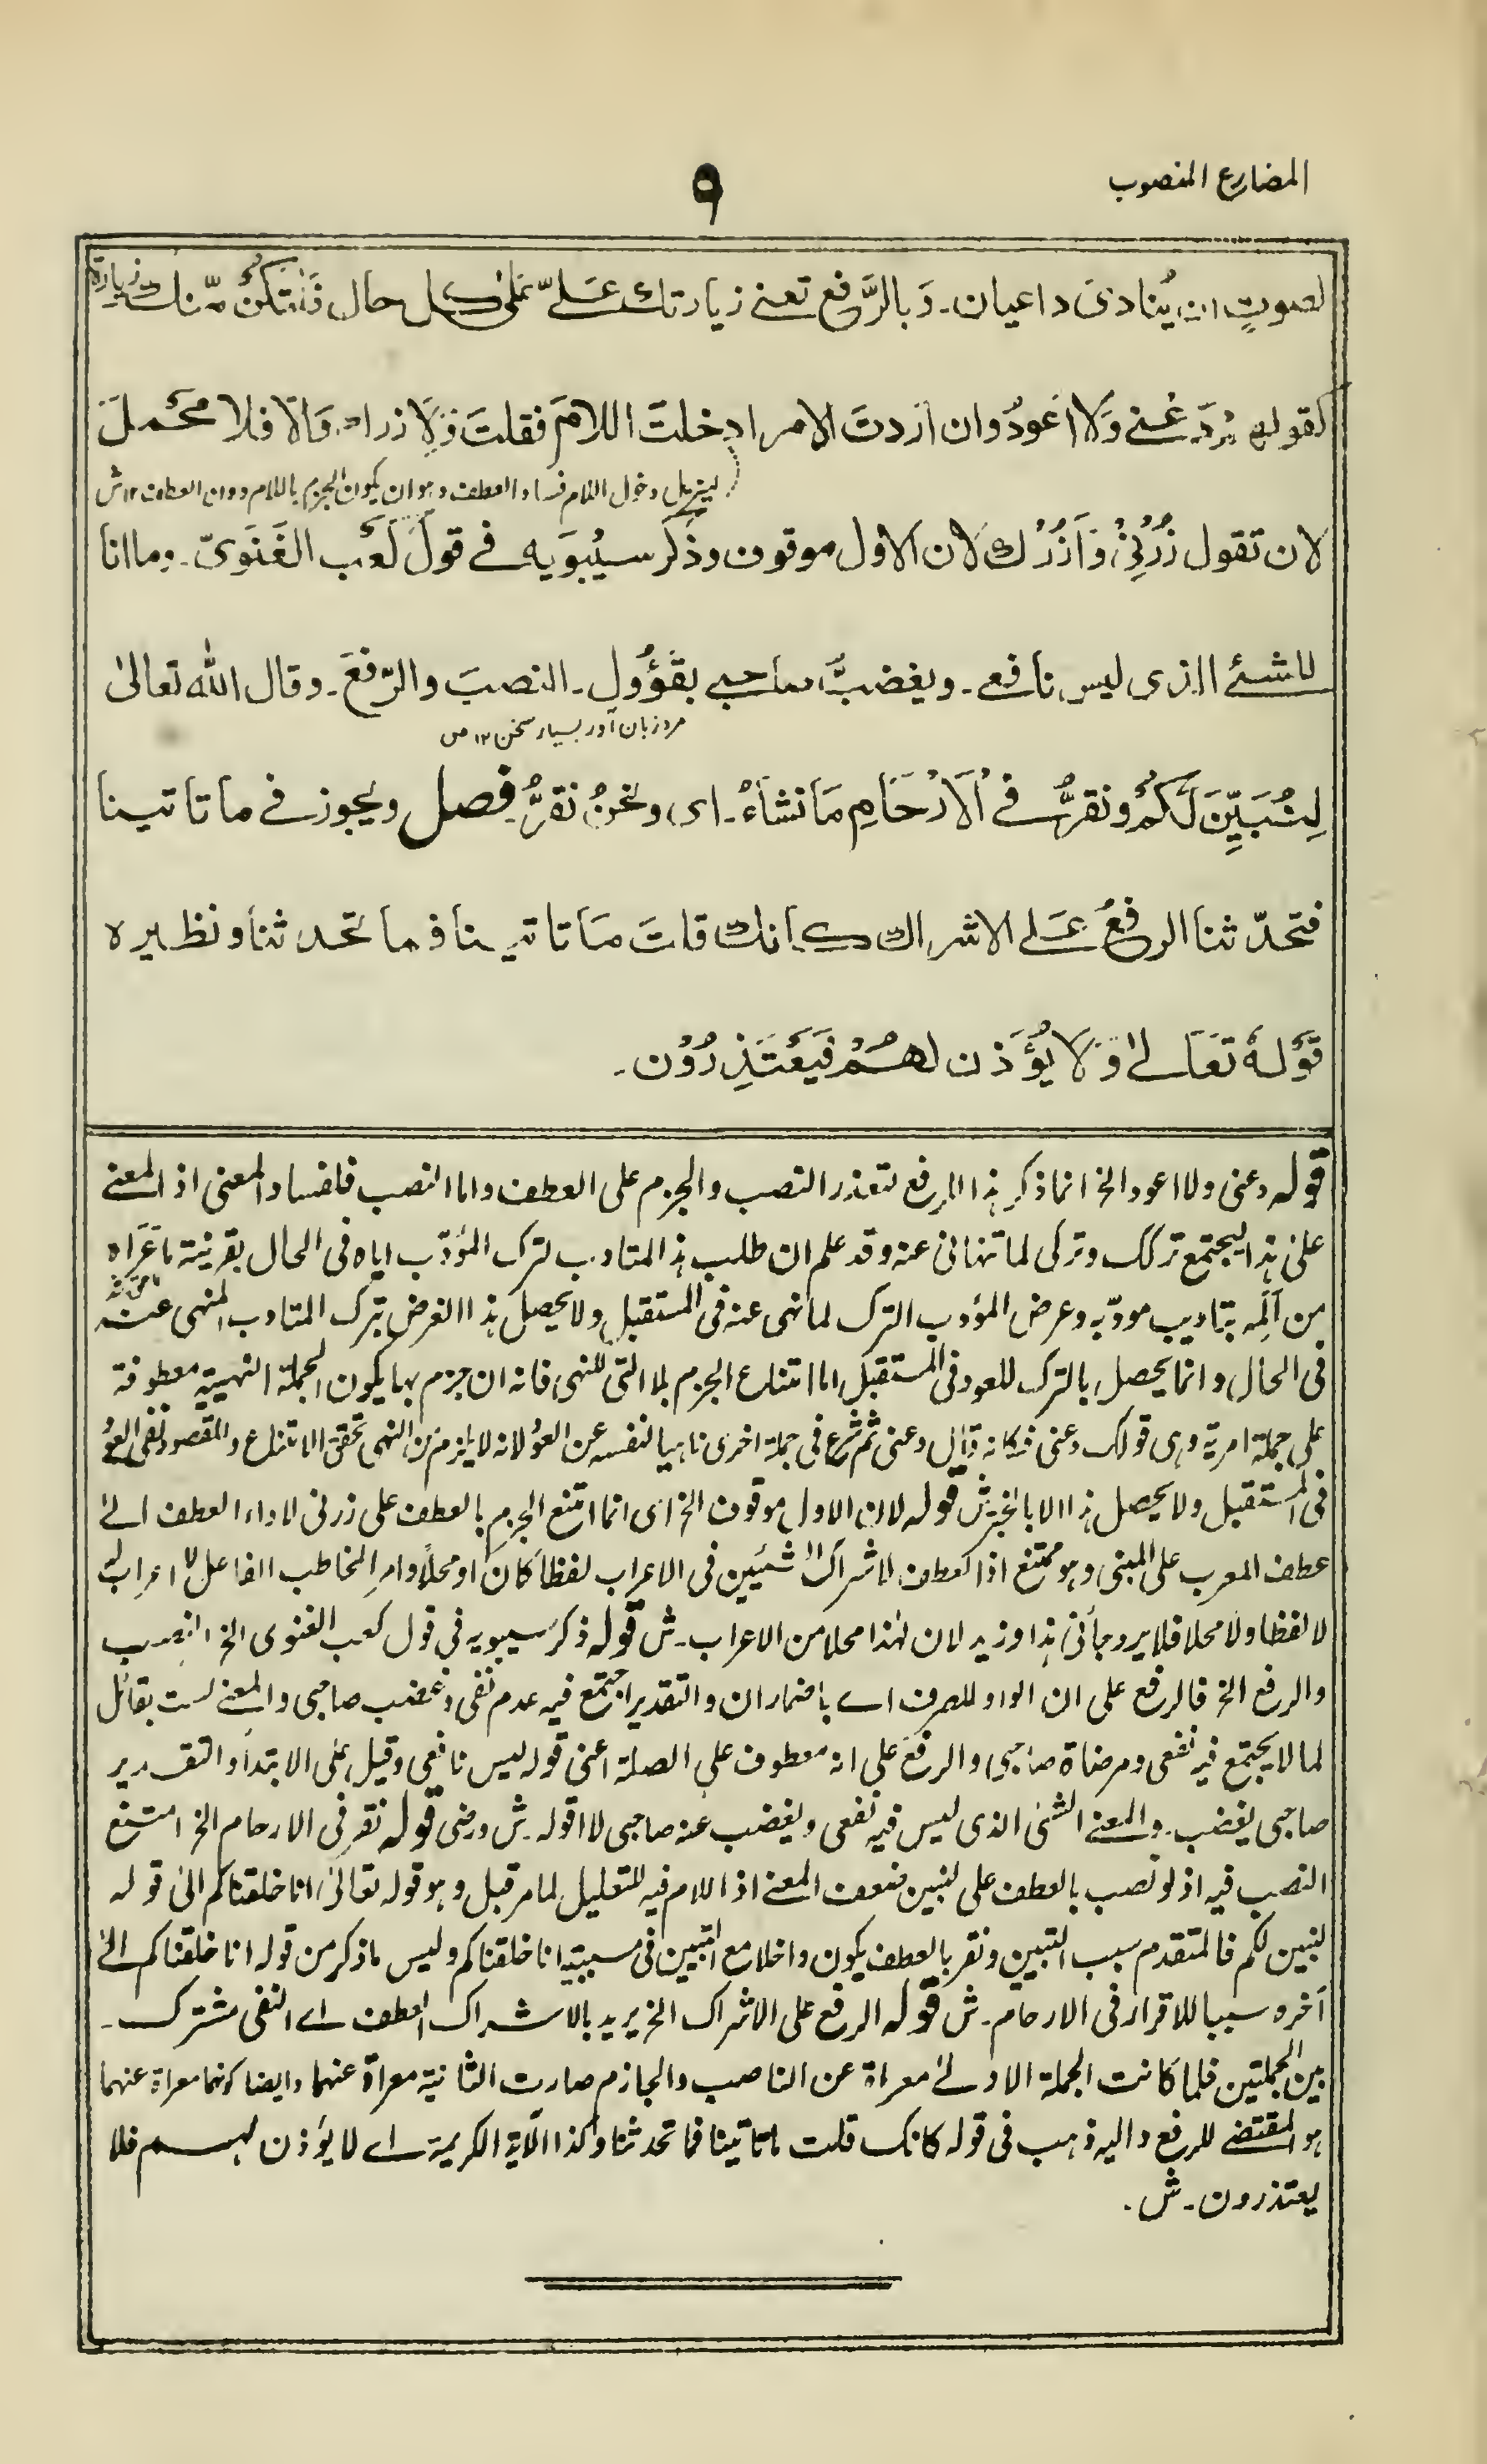 المضارع المنصوب
٩
لصوتٍ ان يُنادىَ داعيان۔ وَبالرَّفع تعنے زيارتك عَلےّ عَلىٰ كل حال فَلْتَكُنْ مّنك زيارة
كقولهم دَعْنے وَلا اَعودُ وان اَردتَ الامر ادخلتَ اللامَ فقلتَ وَلِاَزرك وَالّا فلا مَحْملَ
لينے بل دخول اللام فساد العطف وہو ان يكون الجزم باللام دون العطف ١٢ ش
لان تقول زُرْنِیْ وَاَزُرْك لان الاول موقوف وذكر سيْبوَيه فے قول كَعْب الغَنَوىّ۔ وما انا
للشئے الذى ليس نافعے۔ ويغضبُ صاحبے بقَؤُولِ۔ النصبَ والرّفعَ۔ وقال الله تعالىٰ
مرد زبان آور بسيار سخن ١٢ ص
لِنُبَيِّنَ لَكُمْ ونقرُّ فے الْاَرْحَامِ مَا نَشَاءُ۔ اى ونحنُ نقرُّ فصل ويجوز فے ما تاتينا
فتحدّثنا الرفعُ عَلے الاشراك كانك قلتَ مَا تاتينا فما تحدثنا ونظيره
قَولهُ تعَالےٰ وَلَا يُؤْذَن لهُمْ فَيَعْتَذِرُوْن۔
قوله دعنى ولا اعود الخ انما ذكر ہذا بالرفع لتعذر النصب والجزم على العطف واما النصب فلفساد المعنى اذ المعنے
على ہذا ليجتمع تركك وتركى لما تنہانى عنہ وقد علم ان طلب ہذا المتادب لترك المؤدّب اياه فى الحال بقرينة ما عَراه
من اَلَمہ بتاديب مودّبہ وغرض المؤدب الترك لما نہى عنہ فى المستقبل ولا يحصل ہذا الغرض بترك المتادب المنہى عنہ
فى الحال وانما يحصل بالترك للعود فى المستقبل اما امتناع الجزم بلا التى للنہى فانہ ان جزم بہا يكون الجملة النہيية معطوفة
على جملة امرية وہى قولك دعنى فكانہ قال دعنى ثم شرع فى جملة اخرى ناہيا لنفسہ عن العود لانہ لا يلزم من النہى تحقق الامتناع والمقصود نفى العود
فى المستقبل ولا يحصل ہذا الا بالخبر ش قوله لان الاول موقوف الخ اى انما امتنع الجزم بالعطف على زرنى لاداء العطف الےٰ
عطف المعرب على المبنى وہو ممتنع اذ العطف لاشراك الشيئين فى الاعراب لفظا كان او محلا وامر المخاطب الفاعل لا اعراب لہ
لا لفظا ولا محلا فلا يرد جاءنى ہذا وزيد لان لہٰذا محلا من الاعراب۔ ش قوله ذكر سيبويہ فى قول كعب الغنوى الخ النصب
والرفع الخ فالرفع على ان الواو للصرف اے باضمار ان والتقدير اجتمع فيہ عدم نفى وغضب صاحبى والمعنے لست بقائل
لما لا يجتمع فيہ نفعى ومرضاة صاحبى والرفع على انہ معطوف على الصلة اعنى قولہ ليس نافعى وقيل على الابتداء والتقدير
صاحبى يغضب۔ والمعنے الشئ الذى ليس فيہ نفعى ويغضب عنہ صاحبى لا اقولہ۔ ش ورضى قوله نقر فى الارحام الخ امتنع
النصب فيہ اذ لو نصب بالعطف على لنبين ضعف المعنے اذ اللام فيہ للتعليل لما مر قبل وہو قولہ تعالىٰ انا خلقناكم الىٰ قولہ
لنبين لكم فالمتقدم سبب التبيين ونقر بالعطف يكون داخلا مع التبيين فى مسببية انا خلقناكم وليس ما ذكر من قولہ انا خلقناكم الےٰ
آخره سببا للاقرار فى الارحام۔ ش قوله الرفع على الاشراك الخ يريد بالاشراك العطف اے النفى مشترك۔
بين الجملتين فلما كانت الجملة الاولےٰ معراة عن الناصب والجازم صارت الثانية معراة عنہما وايضا كونہا معراة عنہما
ہو المقتضے للرفع واليہ ذہب فى قولہ كانك قلت ما تاتينا فما تحدثنا وكذا الآية الكريمة اے لا يؤذن لہم فلا
يعتذرون۔ ش۔